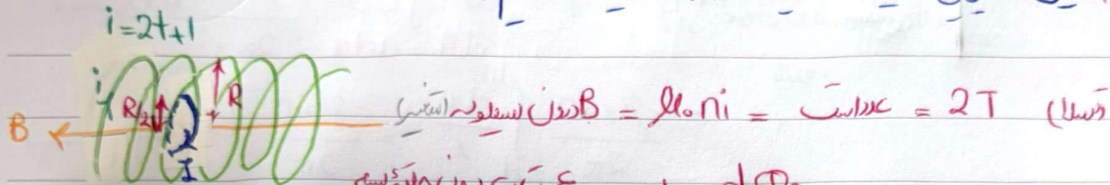 i=2t+1
i
R/2
R
B
I
B درون سیملوله (متغیر) = μ₀ni = عدد ثابت = 2T (تسلا)
dΦ